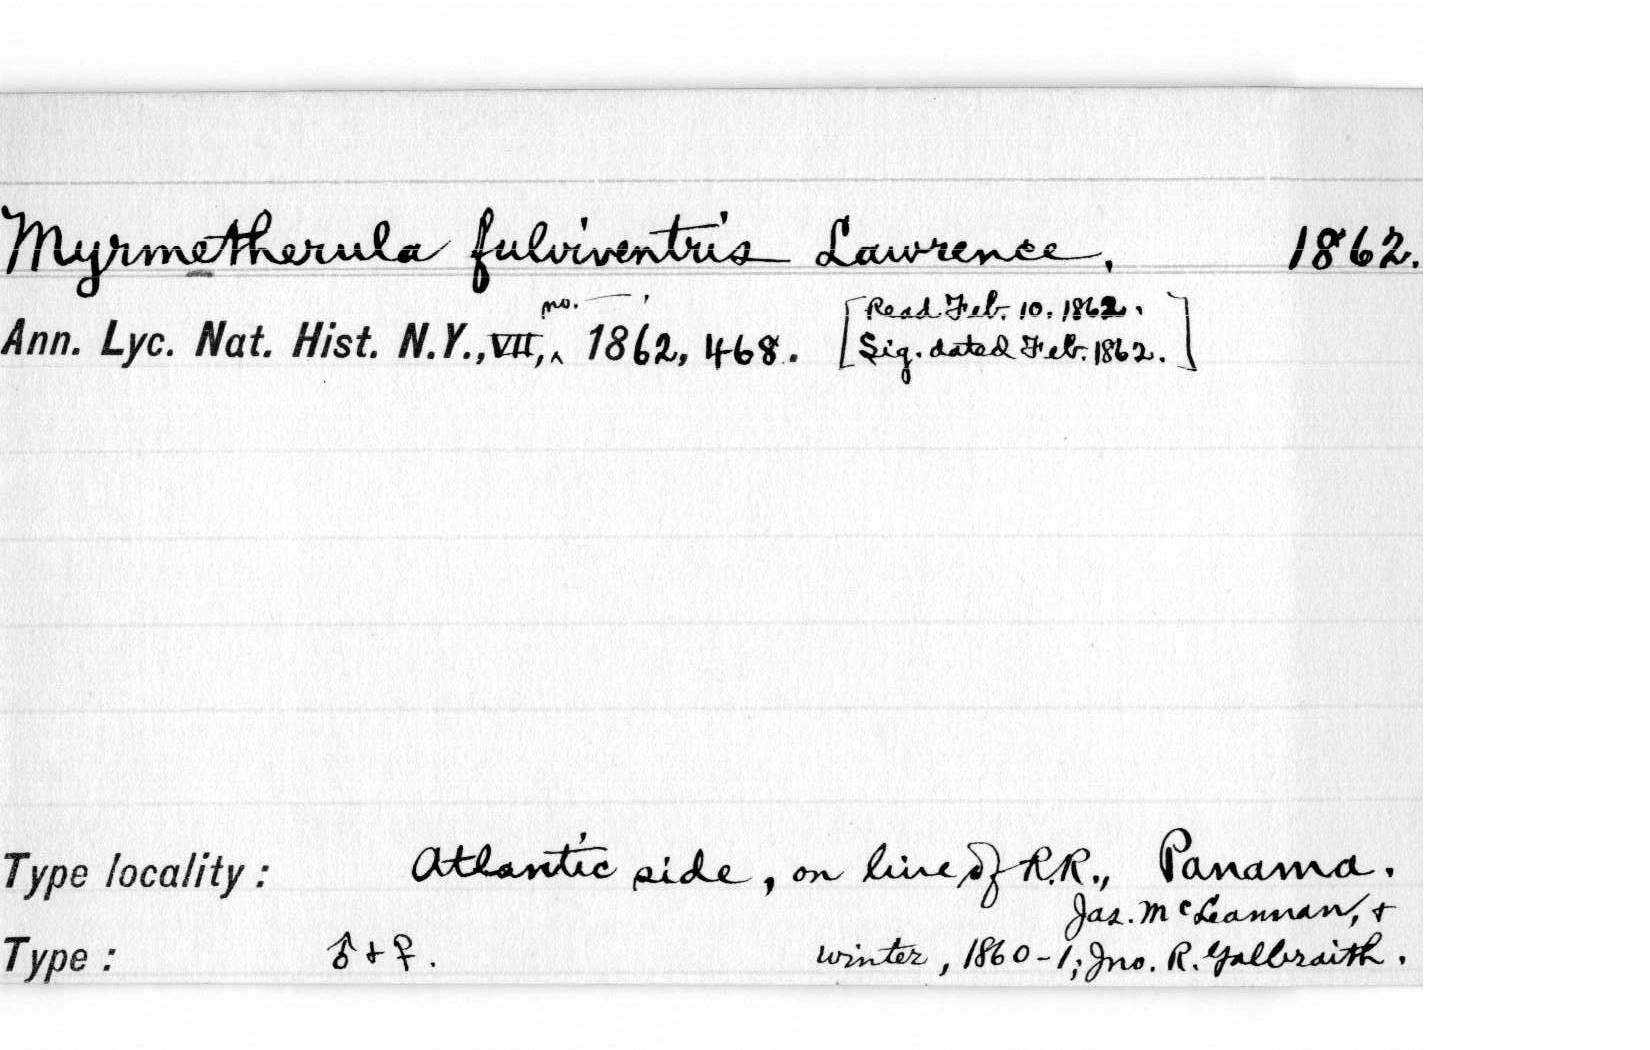 Myrmetherula fulviventris Lawrence, 1862.
Ann. Lyc. Nat. Hist. N.Y., VII, ^ no. — , 1862, 468. [Read Feb. 10, 1862.
Sig. dated Feb. 1862.]
Type locality: Atlantic side, on line of R.R., Panama.
Jas. McLeannan, +
Type: ♂ + ♀. winter, 1860-1; Jno. R. Galbraith.